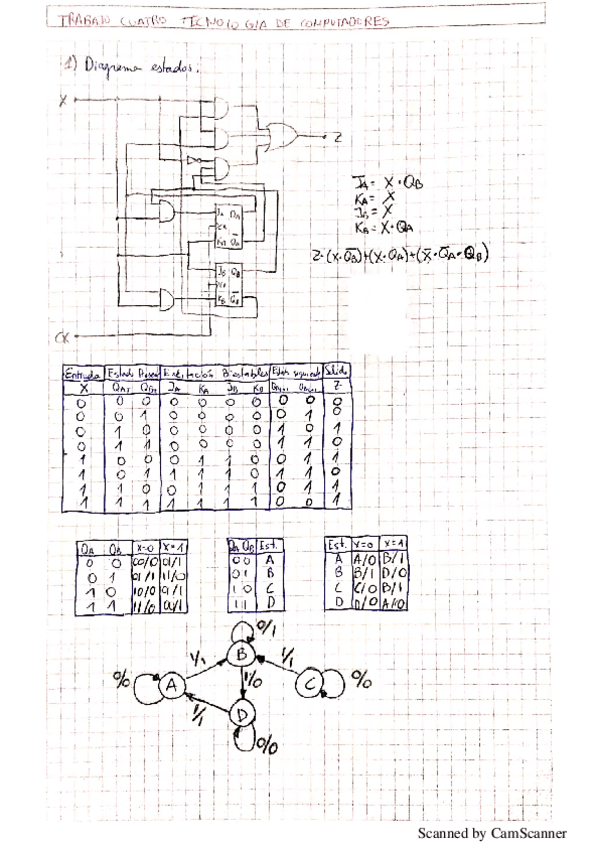 TRABAJO CUATRO TECNOLOGIA DE COMPUTADORES
1) Diagrama estados:
X
Z
CK
J_A Q_A
K_A Q̅_A
J_B Q_B
K_B Q̅_B
J_A = X · Q_B
K_A = X
J_B = X
K_B = X · Q_A
Z = (X · Q̅_B) + (X · Q_A) + (X̅ · Q̅_A · Q_B)
Entrada Estado Biestables Estado siguiente Salida
X J_A K_A J_B K_B Z
0 0 0 0 0 0 0 0 0 0
0 0 1 0 0 0 0 0 1
0 1 0 0 0 0 0 1 0
0 1 1 0 0 0 0 1 1 0
1 0 0 0 1 1 0 0 1 1
1 0 1 1 1 1 0 1 1 0
1 1 0 0 1 1 1 0 1 1
1 1 1 1 1 1 1 0 0 1
Q_A Q_B X=0 X=1
0 0 00/0 01/1
0 1 01/1 11/0
1 0 10/0 01/1
1 1 11/0 00/1
Q_A Q_B Est.
0 0 A
0 1 B
1 0 C
1 1 D
Est. X=0 X=1
A A/0 B/1
B B/1 D/0
C C/0 B/1
D D/0
0/1
B
1/1
1/1
0/0
A
1/0
C
0/0
1/1
D
0/0
Scanned by CamScanner